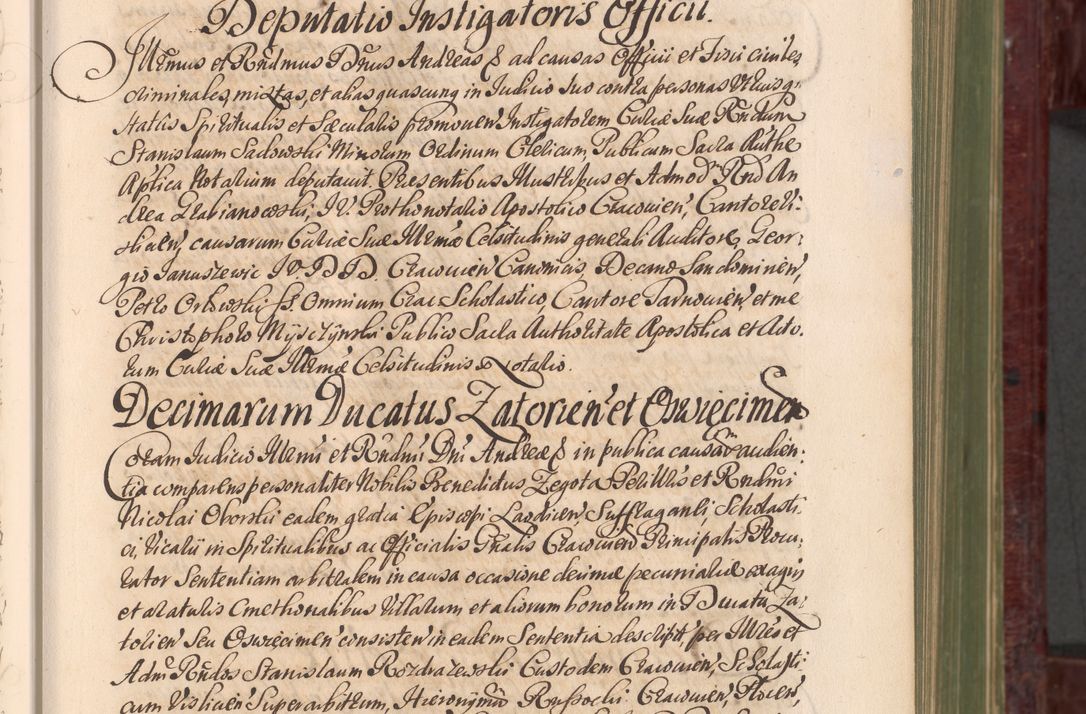 Deputatio Instigatoris Officii.
Illrmus et Rndmus Dnus Andreas ad causas Officii et Fisci civiles
criminales, mixtas, et alias quascunq in Iudicio suo contra personas utriusq
status Spiritualis et Sæcularis promoven Instigatorem Curiæ Suæ Rndum
Stanislaum Sadowski Minorum Ordinum Clericum, Publicum Sacra Authe
Aplica Notarium deputavit. Præsentibus Illustribus et Admod Rnd An
drea Grabianowski, I. V. Prothonotario Apostolico Cracovien, Cantore Vi-
slicien, causarum Curiæ Suæ Illrmæ Celsitudinis generali Auditore, Geor:
gio Januszewic I V. D D. Cracovien Canonicis, Decano Sandomirien,
Petro Orłowski SS. Omnium Crac. Scholastico Cantore Tarnovien, et me
Christophoro Myszczynski Publico Sacra Authoritate Apostolica et Acto.
rum Curiæ Suæ Illrmæ Celsitudinis Notario.
Decimarum Ducatus Zatorien et Oswięcimen
Coram Iudicio Illrmi et Rndmi Dni Andreæ in publica causarum audien:
tia comparens personaliter Nobilis Benedictus Zegota Perillris et Rndmi
Nicolai Oborski eadem gratia Episcopi Laodicen, Suffraganei, Scholasti
ci, Vicarii in Spiritualibus ac Officialis Gnalis Cracovien Principalis Procu:
rator Sententiam arbitralem in causa occasione decimæ pecuniariæ ex agris
et araturis Cmethonalibus Villarum et aliorum bonorum in Ducatu Za:
torien Seu Oswięcimen consisten in eadem Sententia descript, per Illres et
Adm Rndos Stanislaum Rozdrazewski Custodem Cracovien, Scholasti
cum Vislicien Superarbitrum, Hieronymū Russocki Cracovien, Plocen,